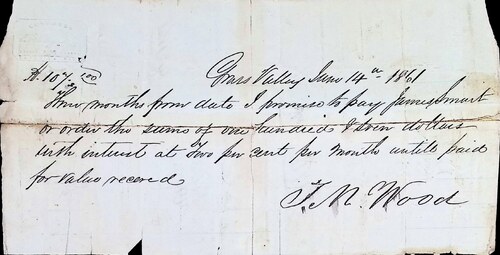 $107.00/100 Grass Valley June 14th 1861
month from date I promise to pay James Smart
or order the sums of one hundred & seven dollars
with interest at Two per cent per month untill paid
for value receved
J. M. Wood